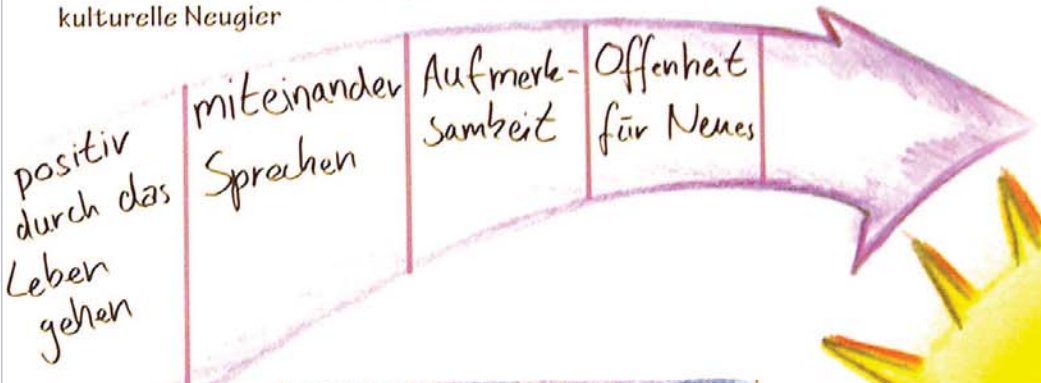 kulturelle Neugier
positiv
durch das
Leben
gehen
miteinander
Sprechen
Aufmerk-
samkeit
Offenheit
für Neues